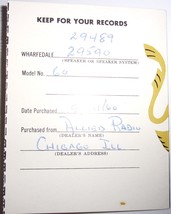 KEEP FOR YOUR RECORDS
29489
WHARFEDALE 29590
(SPEAKER OR SPEAKER SYSTEM)
Model No. 60
Date Purchased /60
Purchased from ALLIED RADIO
(DEALER'S NAME)
CHICAGO ILL
(DEALER'S ADDRESS)